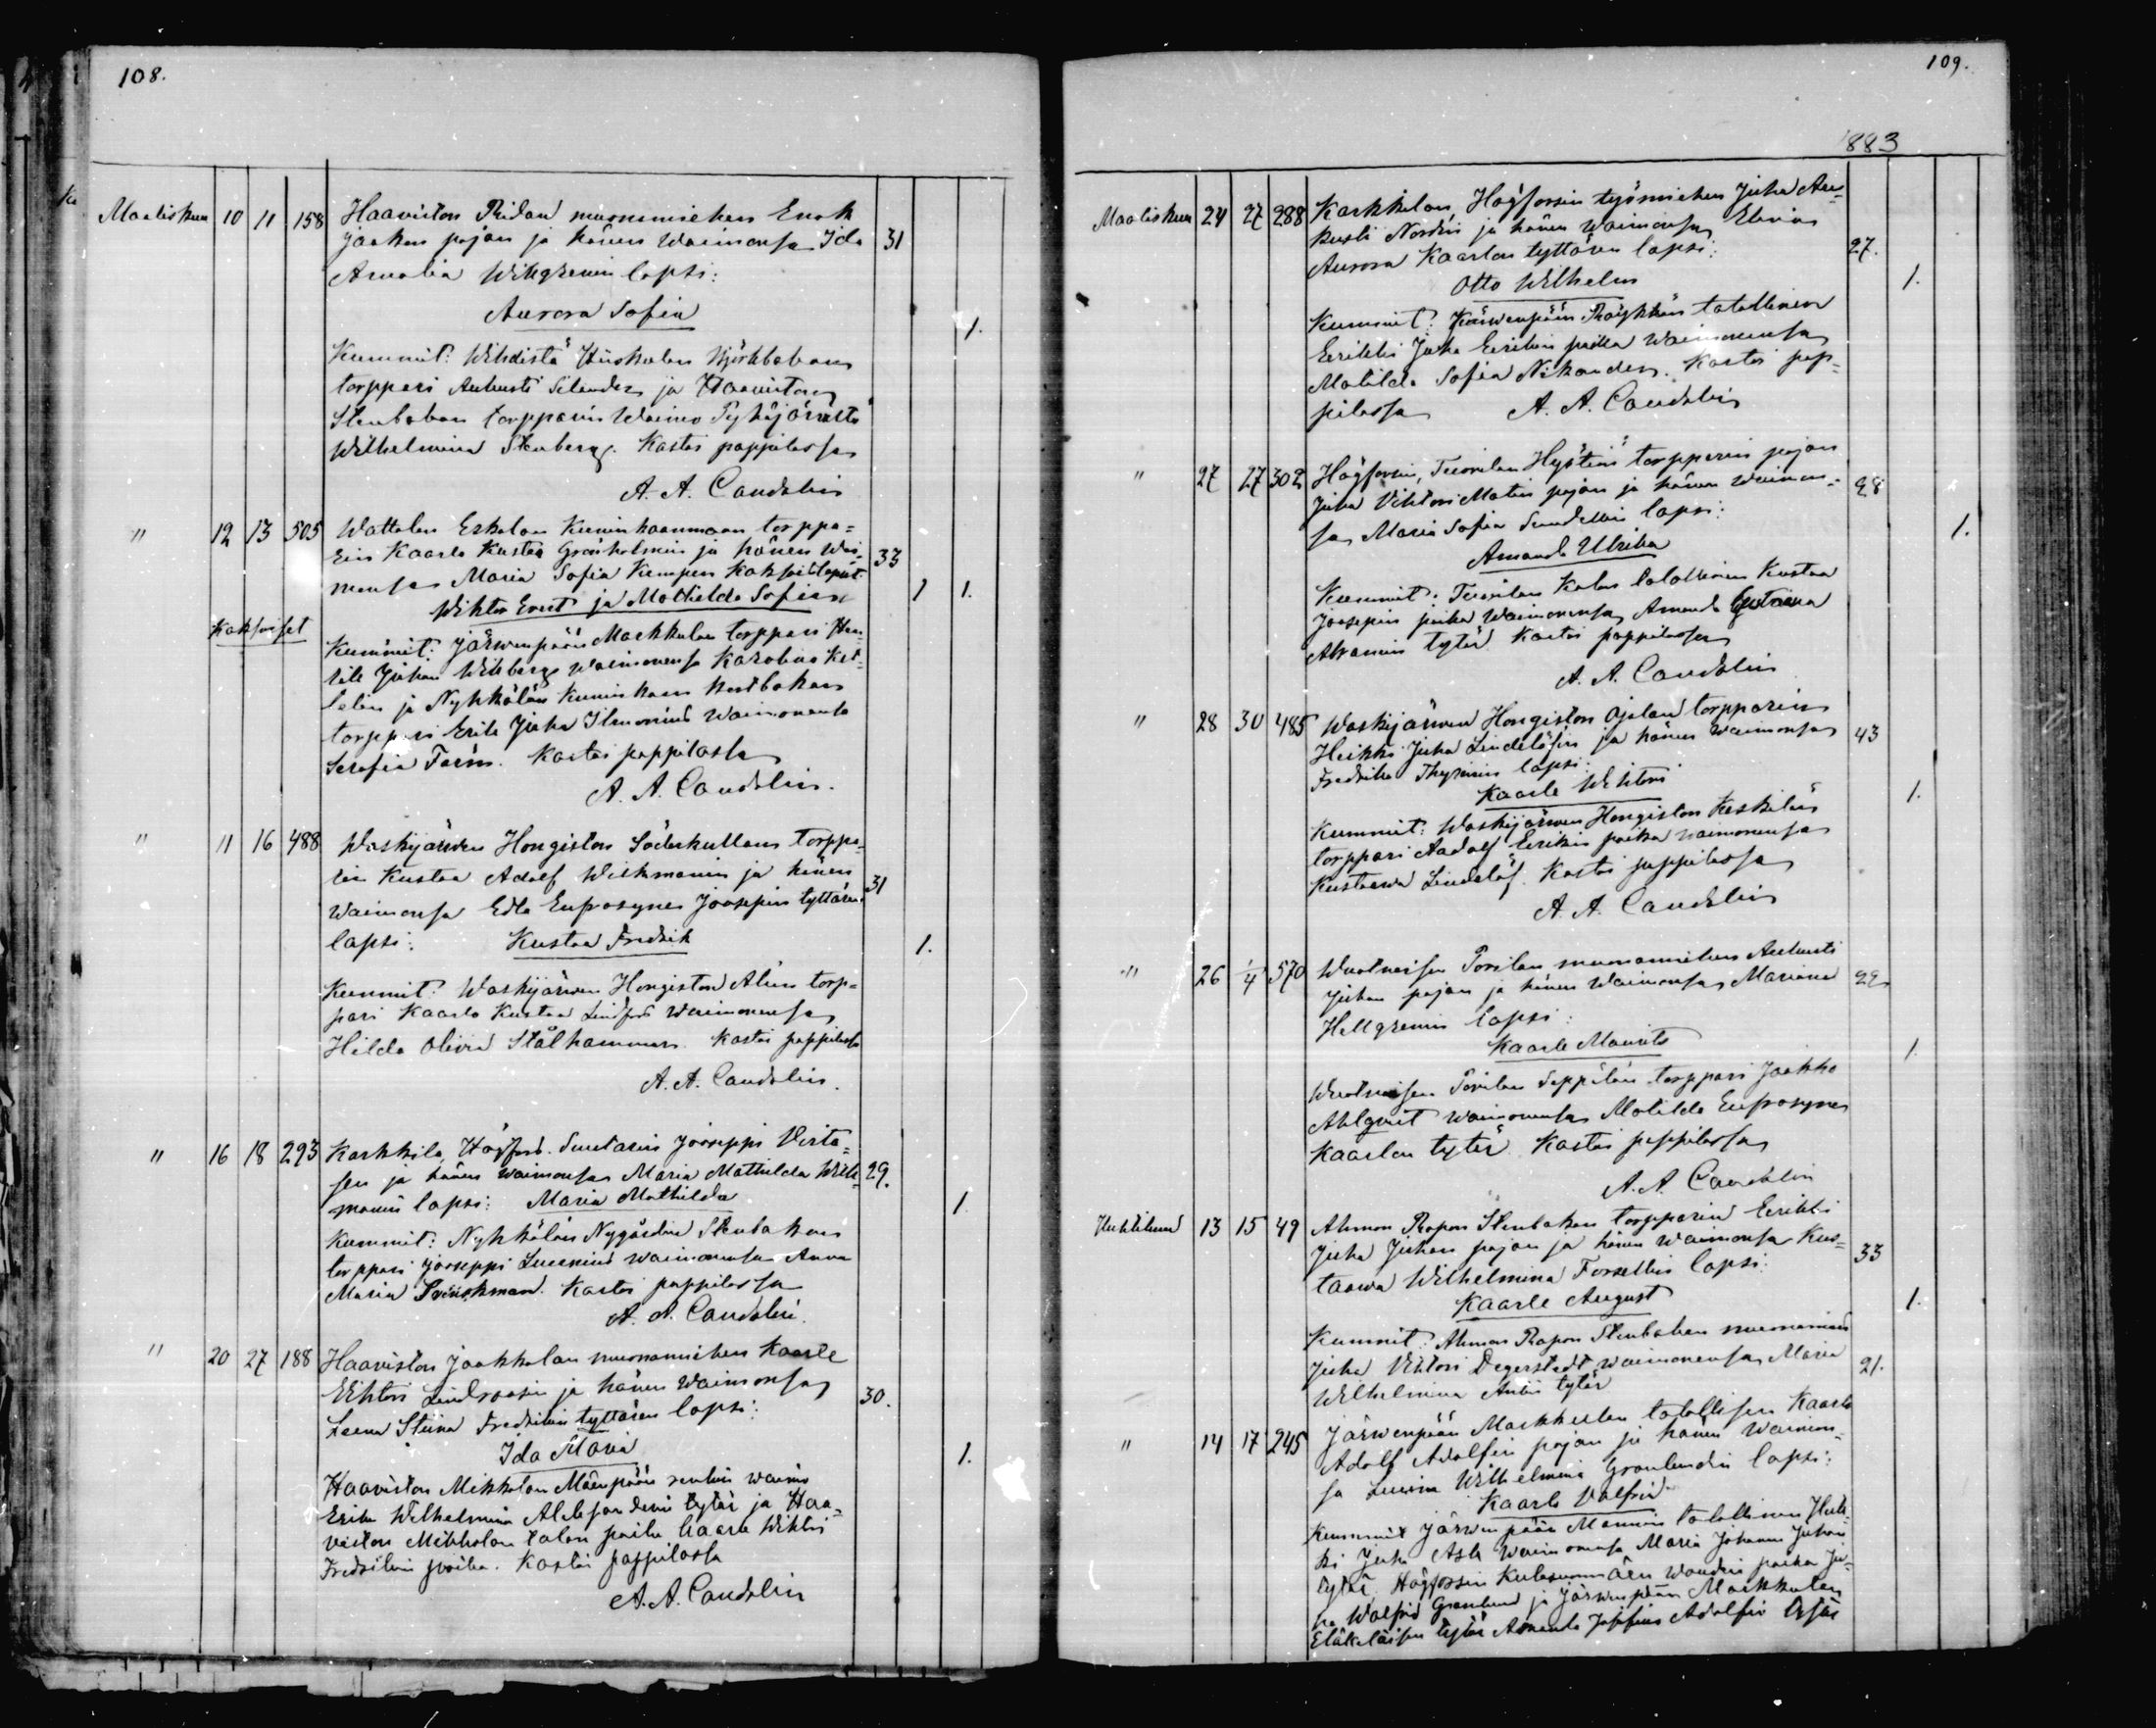 108.
Maaliskuu 10 11 158 Haaviston Ridan muonamiehen Enok
Jaakon pojan ja hänen Waimonsa Ida 31
Amalia Wikgrenin lapsi:
Aurora Sofia 1.
Kummit: Wihdistä Hiiskulan Björkbaban
torppari Aukusti Selander ja Haaviston
Stenbakan torpparin Waimo Pyhäjärveltä
Wilhelmina Stenberg. Kastoi pappilassa
A. A. Candolin
" 12 13 505 Wattolan Eskolan Kuninkaanmaan torppa=
rin Kaarlo Kustaa Grönholmin ja hänen Wai= 33
monsa Maria Sofia Kempen Kaksoislapset
Wihtor Evert ja Mathilda Sofia 1 1.
Kaksoiset
Kummit: Järwenpään Markkulan torppari
Juhan Wikberg waimonensa Karolina
ja Nyhkälän Kuninkaan
torppari Erik Juha Ilmonius Waimonensa
Serafia Forss. Kastoi pappilassa
A. A. Candolin.
" 11 16 488 Waskijärwen Hongiston Söderkullan torppa=
rin Kustaa Adolf Wickmanin ja hänen 31
Waimonsa Edla Eufrosyne Joosepin tyttären
lapsi: Kustaa Fredrik 1.
Kummit: Waskijärwen Hongiston Alin torp=
pari Kaarlo Kustaa Lindfors waimonensa
Hilda Olivia Stålhammar. Kastoi pappilassa
A. A. Candolin.
" 16 18 293 Karkkila, Högfors. Suutarin Jooseppi Virta=
sen ja hänen waimonsa Maria Mathilda Wick= 29.
manin lapsi: Maria Mathilda 1
Kummit: Nyhkälän Nygårdin Stenbakan
torppari Jooseppi Lucenius waimonensa Anna
Maria Brinkman. Kastoi pappilassa
A. A. Candolin.
" 20 27 188 Haaviston Jaakkolan muonamiehen Kaarle
Wihtori Lindroosin ja hänen Waimonsa 30.
Leena Stiina Fredrikin tyttären lapsi:
Ida Maria 1.
Haaviston Mikkolan Mäenpään renkin waimo
Erika Wilhelmina Aleksanderin tytär ja Haa=
viston Mikkolan talon poika Kaarle Wihtori
Fredrikin poika. Kastoi pappilassa
A. A. Candolin
109.
1883
Maaliskuu 24 27 288 Karkkilan, Högforsin työmiehen Juha Au=
kusti Nordin ja hänen Waimonsa Elviira
Aurora Kaarlon tyttären lapsi: 27.
Otto Wilhelm 1.
Kummit: Järwenpään Röykkän talollinen
Eerikki Juha Eerikin poika Waimonensa
Matilda Sofia Nikander. Kastoi pap=
pilassa A. A. Candolin
" 27 27 302 Högforsin, Tuorilan Hystin torpparin pojan
Juha Vihtori Matin pojan ja hänen Waimon= 28
sa Maria Sofia Sundellin lapsi: 1.
Amanda Ulrika
Kummit: Tuorilan talollinen Kustaa
Joosepin poika Waimonensa Amanda Gustaava
Abramin tytär. Kastoi pappilassa
A. A. Candolin
" 28 30 485 Waskijärwen Hongiston Ojalan torpparin
Heikki Juha Lindelöfin ja hänen Waimonsa 43
Fredrika Thyrenin lapsi:
Kaarle Wihtori 1.
Kummit: Waskijärwen Hongiston Keskilän
torppari Aadolf Eerikin poika waimonensa
Kustaava Lindelöf. Kastoi pappilassa
A. A. Candolin
" 26 1/4 570 Wuotnaisen Porilan muonamiehen Aukusti
Juhan pojan ja hänen Waimonsa Mariana 22
Hellgrenin lapsi:
Kaarle Maurits 1.
Wuotnaisen Porilan Seppälän torppari Jaakko
Ahlqvist waimonensa Matilda Eufrosyne
Kaarlon tytär Kastoi pappilassa
A. A. Candolin
Huhtikuu 13 15 49 Ahmon Rapon Stenbakan torpparin Eerikki
Juha Juhan pojan ja hänen Waimonsa Kus= 33
taawa Wilhelmina Forsellin lapsi:
Kaarle August 1.
Kummit: Ahmon Rapon Stenbakan muonamies
Juha Vihtori Degerstedt waimonensa Maria 21.
Wilhelmina Antin tytär
" 14 17 245 Järwenpään Markkulan talollisen Kaarlo
Adolf Adolfin pojan ja hänen Waimon=
sa Wilhelmina Granlundin lapsi:
Kaarlo Valfrid
Kummit Järwenpään Mannin talollinen Heik=
ki Juha Ask Waimonensa Maria Johanna Juhan
tytär. Högforsin Kulosuonmäen woudin poika Ju=
ha Walfrid Granlund ja Järwenpään Markkulan
Eläkeläisen tytär Amanda Josefina Adolfin tytär